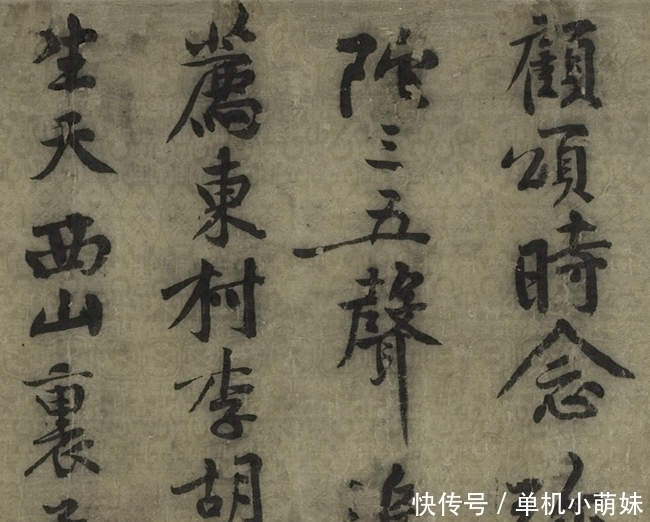 顧頌時念
陁三五聲
薦東村李胡
生天西山裏
快传号 / 单机小萌妹